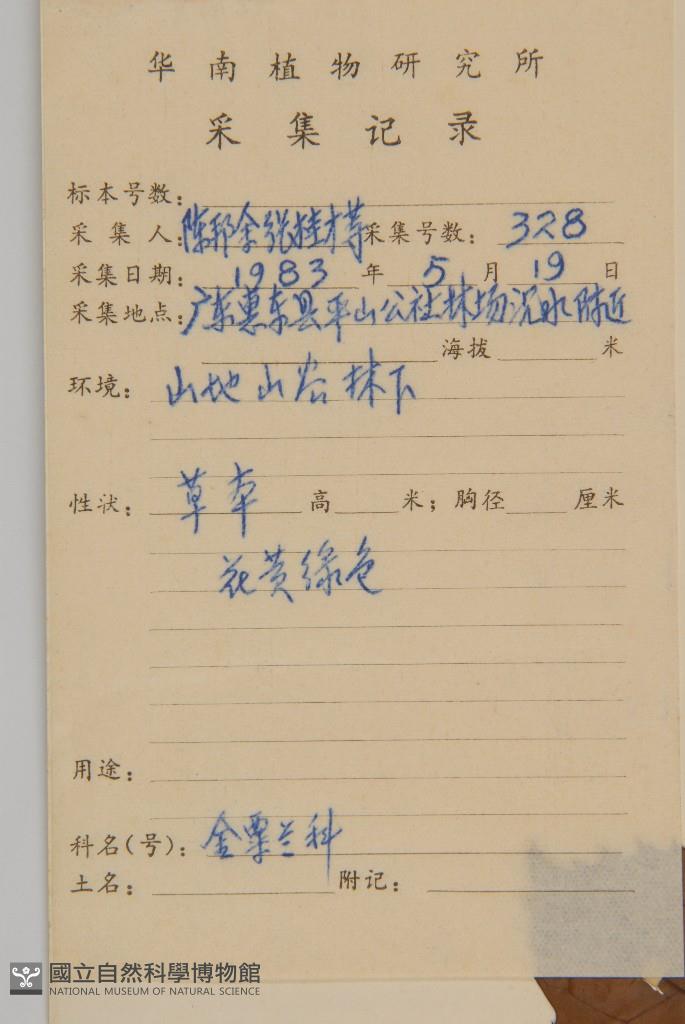 华南植物研究所
采集记录
标本号数：
采集人：陈邦余张桂才等 采集号数：328
采集日期：1983年5月19日
采集地点：广东惠东县平山公社林场沉水附近
海拔 米
环境：山地山谷林下
性状：草本 高 米；胸径 厘米
花黄绿色
用途：
科名(号)：金粟兰科
土名： 附记：
國立自然科學博物館
NATIONAL MUSEUM OF NATURAL SCIENCE